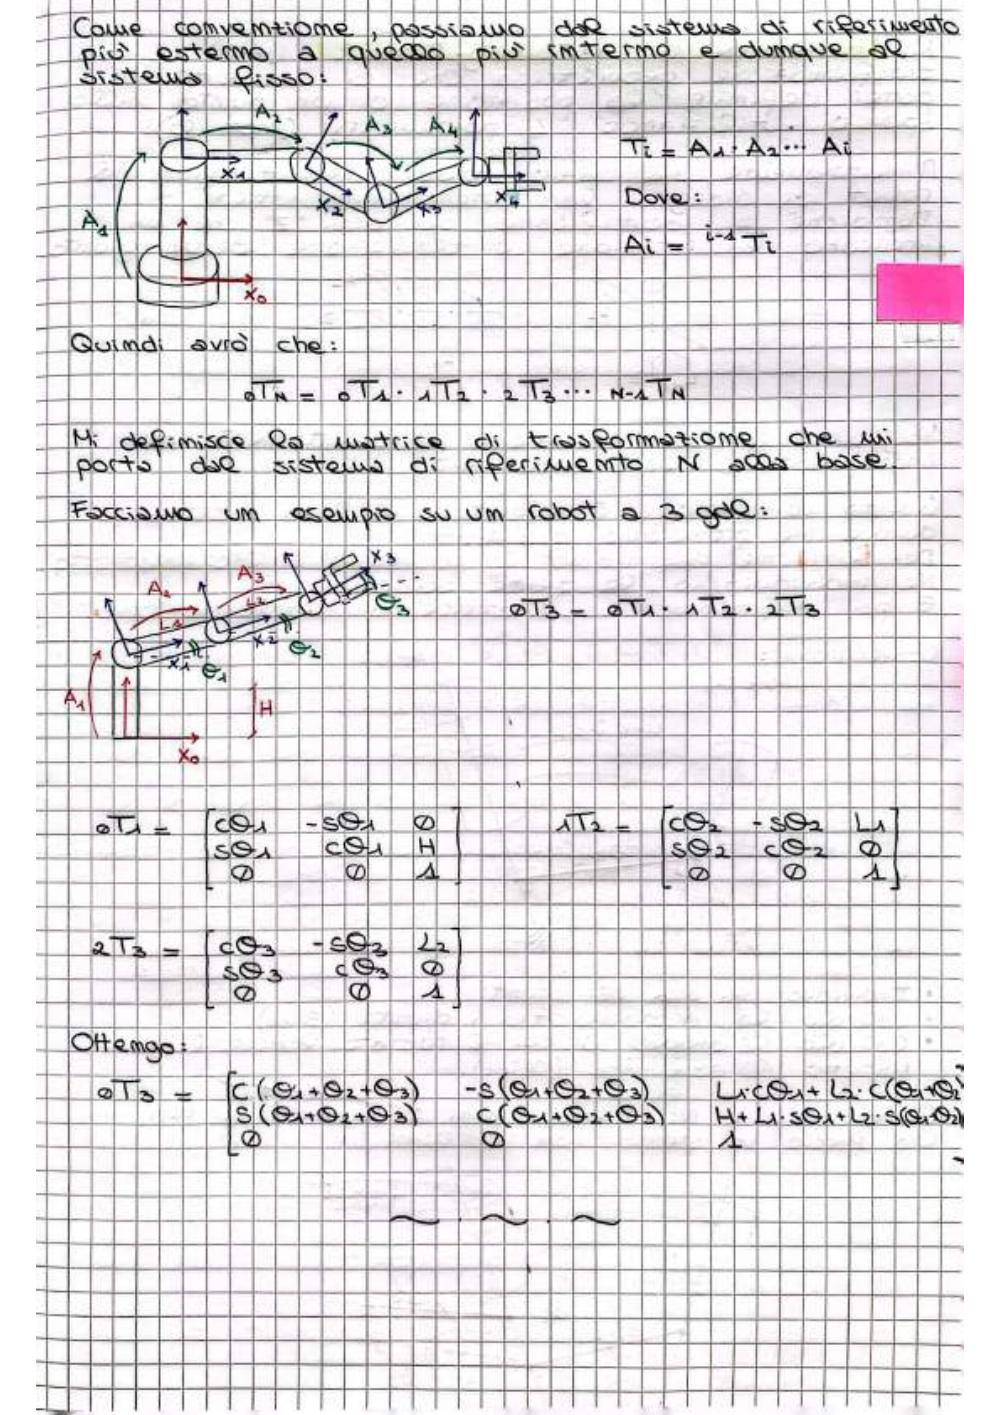 Come convenzione, passiamo dal sistema di riferimento
più esterno a quello più interno e dunque al
sistema fisso:
A2 A3 A4
A1 X1 X2 X3 X4
X0
Ti = A1 · A2 ··· Ai
Dove:
Ai = i-1Ti
Quindi avrò che:
0TN = 0T1 · 1T2 · 2T3 ··· N-1TN
Mi definisce la matrice di trasformazione che mi
porta dal sistema di riferimento N alla base.
Facciamo un esempio su un robot a 3 gdl:
A2 A3 X3
L1 L2 θ3
X1 θ1 X2 θ2
A1 H
X0
0T3 = 0T1 · 1T2 · 2T3
0T1 = [cθ1 -sθ1 0
sθ1 cθ1 H
0 0 1]
1T2 = [cθ2 -sθ2 L1
sθ2 cθ2 0
0 0 1]
2T3 = [cθ3 -sθ3 L2
sθ3 cθ3 0
0 0 1]
Ottengo:
0T3 = [C(θ1+θ2+θ3) -s(θ1+θ2+θ3) L1·cθ1+L2·c(θ1+θ2
S(θ1+θ2+θ3) C(θ1+θ2+θ3) H+L1·sθ1+L2·s(θ1+θ2)
0 0 1